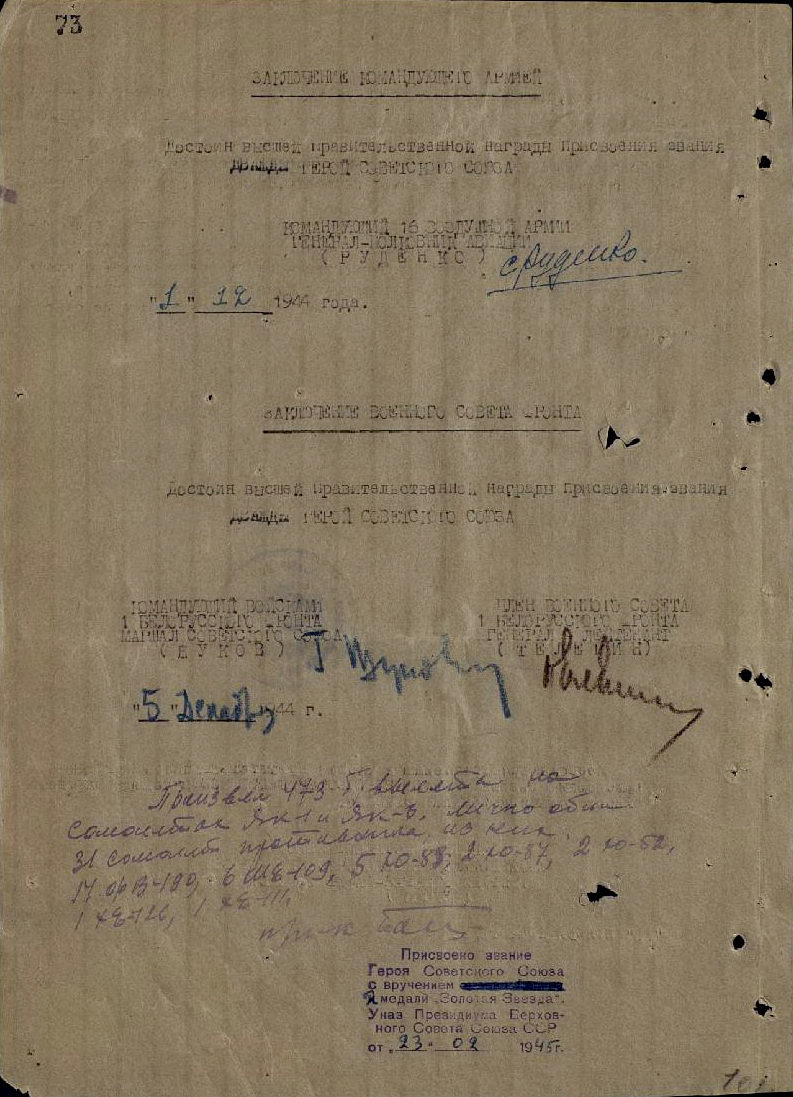 73
ЗАКЛЮЧЕНИЕ КОМАНДУЮЩЕГО АРМИЕЙ
Достоин высшей правительственной награды присвоения звания
дважды ГЕРОЙ СОВЕТСКОГО СОЮЗА
КОМАНДУЮЩИЙ 16 ВОЗДУШНОЙ АРМИИ
ГЕНЕРАЛ-ПОЛКОВНИК АВИАЦИИ
( Р У Д Е Н К О ) С Руденко.
"1" 12 1944 года.
ЗАКЛЮЧЕНИЕ ВОЕННОГО СОВЕТА ФРОНТА
Достоин высшей правительственной награды присвоения звания
дважды ГЕРОЙ СОВЕТСКОГО СОЮЗА
КОМАНДУЮЩИЙ ВОЙСКАМИ
1 БЕЛОРУССКОГО ФРОНТА
МАРШАЛ СОВЕТСКОГО СОЮЗА
( Ж У К О В ) Г Жуков
ЧЛЕН ВОЕННОГО СОВЕТА
1 БЕЛОРУССКОГО ФРОНТА
ГЕНЕРАЛ ЛЕЙТЕНАНТ
( Т Е Л Е Г И Н )
"5" Декабря 1944 г.
Произвел 473 б. вылета на
самолетах Як-1 и Як-3. Лично сбил
31 самолет противника из них
17 ФВ-190, 6 МЕ-109, 5 Ю-88, 2 Ю-87,
1 ХЕ-126, 1 ХЕ-111.
Присвоено звание
Героя Советского Союза
с вручением
2 медали „Золотая Звезда".
Указ Президиума Верхов-
ного Совета Союза ССР
от „23" 02 1945г.